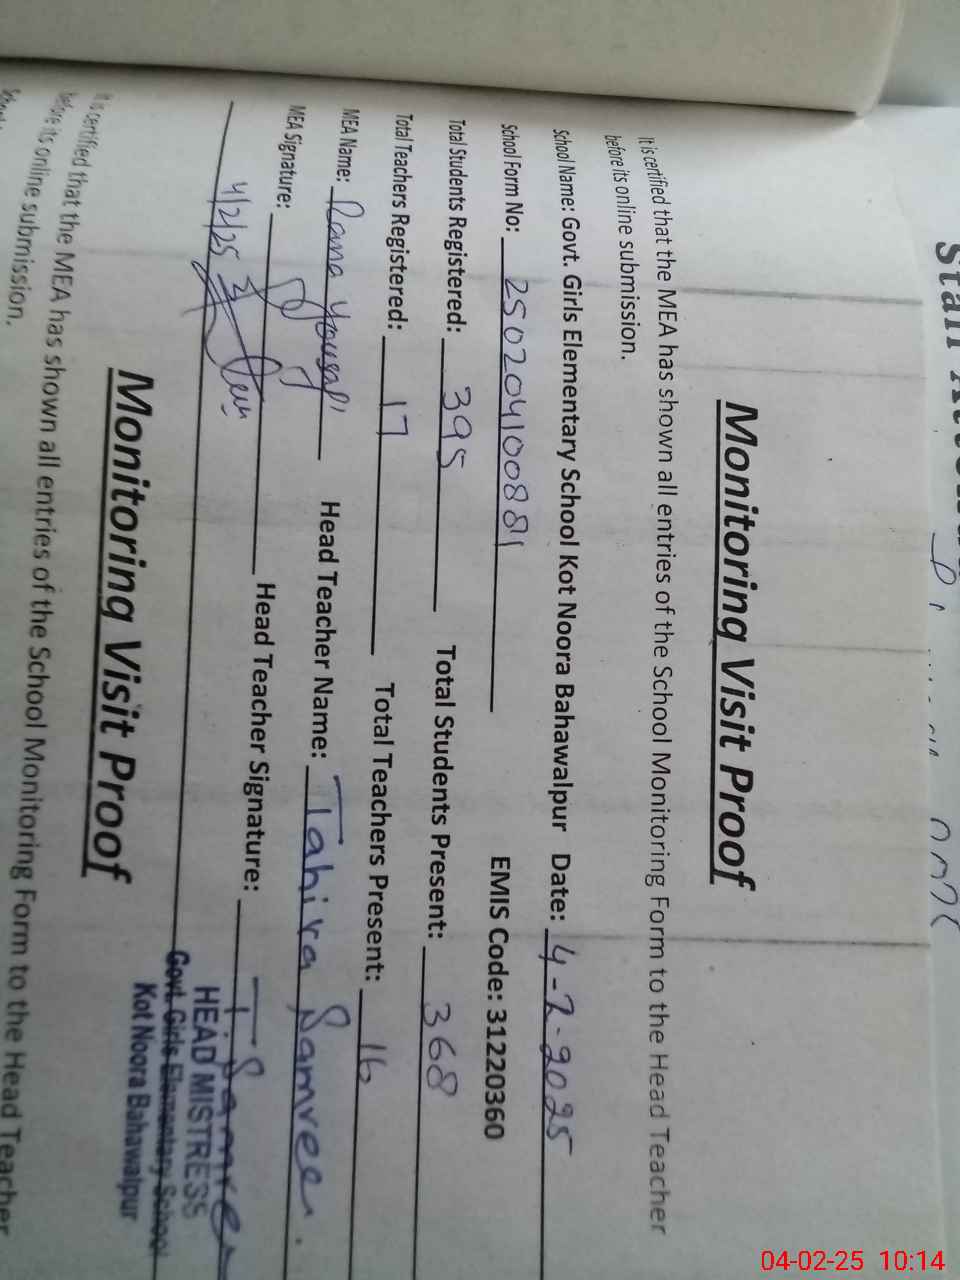 Monitoring Visit Proof
It is certified that the MEA has shown all entries of the School Monitoring Form to the Head Teacher
before its online submission.
School Name: Govt. Girls Elementary School Kot Noora Bahawalpur Date: 4-2-2025
School Form No: 250204100881 EMIS Code: 31220360
Total Students Registered: 395 Total Students Present: 368
Total Teachers Registered: 17 Total Teachers Present: 16
MEA Name: Rana Yousaf Head Teacher Name: Tahira Samreen.
MEA Signature: Head Teacher Signature: T. Samreen
4/2/25
HEAD MISTRESS
Govt. Girls Elementary School
Kot Noora Bahawalpur
Monitoring Visit Proof
It is certified that the MEA has shown all entries of the School Monitoring Form to the Head Teacher
before its online submission.
04-02-25 10:14